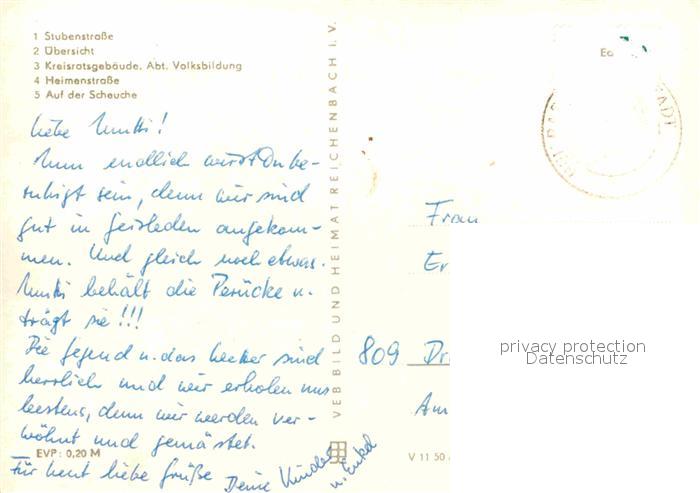 1 Stubenstraße
2 Übersicht
3 Kreisratsgebäude, Abt. Volksbildung
4 Heimenstraße
5 Auf der Scheuche
liebe Mutti!
Nun endlich wirst Du be-
ruhigt sein, denn wir sind
gut in Geisleden angekom-
men. Und gleich noch etwas.
Mutti behält die Perücke u.
trägt sie!!!
Die Gegend u. das Wetter sind
herrlich und wir erholen uns
bestens, denn wir werden ver-
wöhnt und gemästet.
Für heut liebe Grüße Deine Kinder
u. Enkel
EVP: 0,20 M
VEB BILD UND HEIMAT REICHENBACH I. V.
V 11 50
Frau
Er
809 Dr
Am
privacy protection
Datenschutz